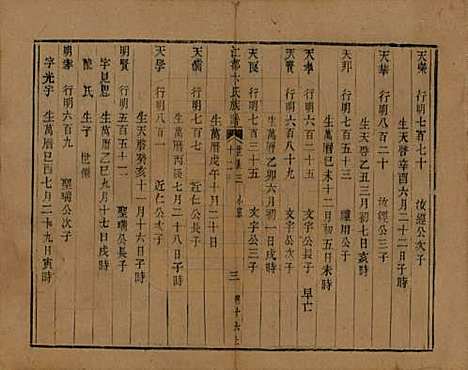 天榮 行明七百七十 汝經公次子
生天啓辛酉六月二十二日子時
天華 行明八百二十 汝經公三子
生天啓乙丑三月初七日亥時
天邦 行明七百五十三 繼用公子
生萬曆己未十二月初五日未時
天學 行明六百八十九 文字公長子 早亡
天民 行明七百三十五 文字公三子
生萬曆乙卯六月初一日戌時
江都卞氏族譜 三
生萬曆戊午十月二十日
天儒 行明七百七 近仁公長子
生萬曆丙辰七月二十八日子時
天學 行明八百七 近仁公次子
生天啓癸亥十一月六日子時
明賢 行明五百五十一 聖瑞公長子
字見思 生萬曆 九月十七日戌時
陳氏 生子 世
明泰 行明六百九 聖瑞公次子
字光宇 生萬曆己酉七月二十九日寅時